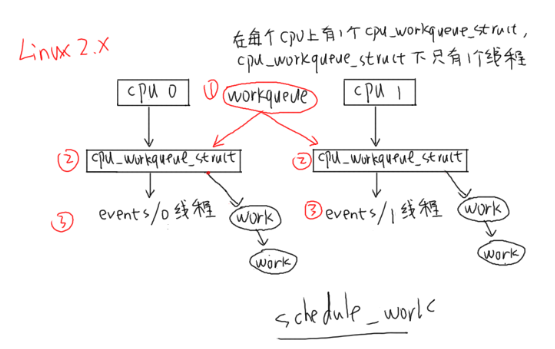 Linux 2.x
在每个CPU上有1个cpu_workqueue_struct,
cpu_workqueue_struct下只有1个线程
cpu 0
① workqueue
cpu 1
② cpu_workqueue_struct
② cpu_workqueue_struct
③ events/0 线程
work
work
③ events/1 线程
work
work
schedule_work